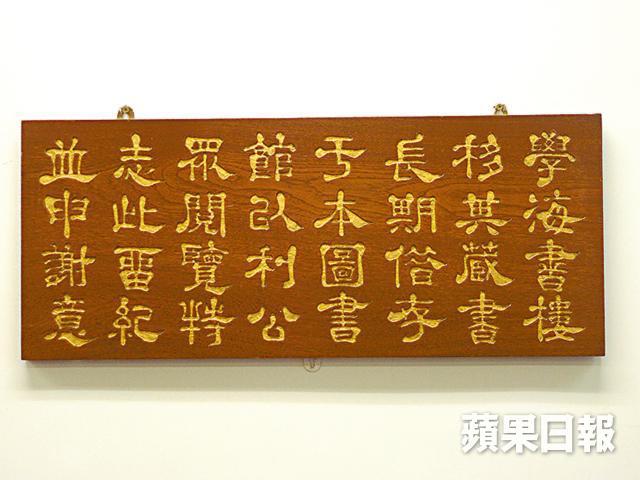 學海書樓
移其藏書
長期借存
于本圖書
館以利公
眾閱覽特
志此畱紀
並申謝意
蘋果日報